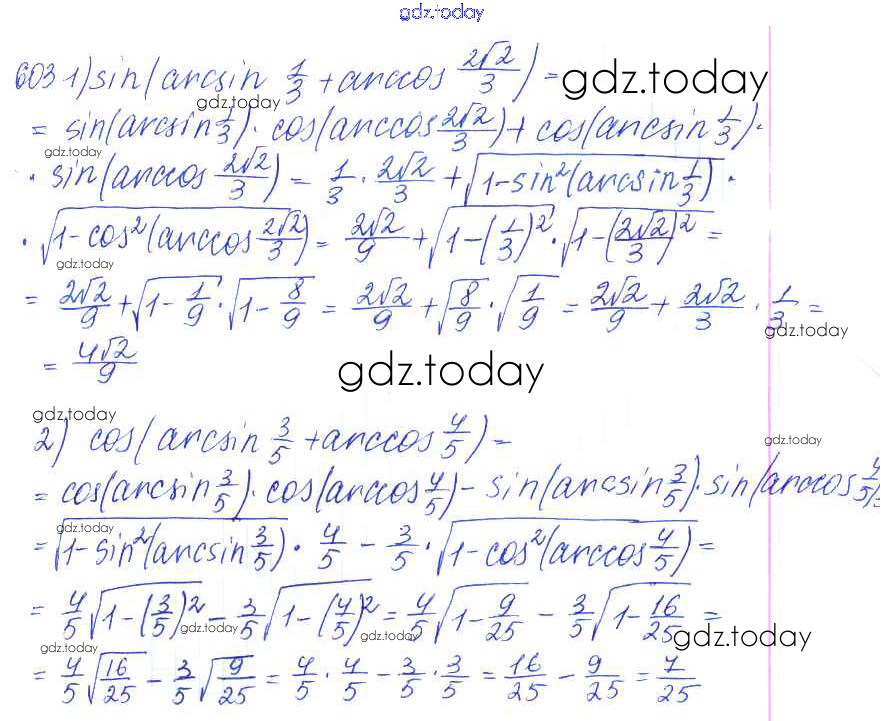 gdz.today
603 1) sin(arcsin 1/3 + arccos 2√2/3) = gdz.today
gdz.today
= sin(arcsin 1/3) · cos(arccos 2√2/3) + cos(arcsin 1/3) ·
gdz.today
· sin(arccos 2√2/3) = 1/3 · 2√2/3 + √(1-sin²(arcsin 1/3)) ·
· √(1-cos²(arccos 2√2/3)) = 2√2/9 + √(1-(1/3)²) · √(1-(2√2/3)²) =
gdz.today
= 2√2/9 + √(1-1/9) · √(1-8/9) = 2√2/9 + √(8/9) · √(1/9) = 2√2/9 + 2√2/3 · 1/3 =
gdz.today
= 4√2/9
gdz.today
gdz.today
2) cos(arcsin 3/5 + arccos 4/5) =
gdz.today
= cos(arcsin 3/5) · cos(arccos 4/5) - sin(arcsin 3/5) · sin(arccos 4/5)=
gdz.today
= √(1-sin²(arcsin 3/5)) · 4/5 - 3/5 · √(1-cos²(arccos 4/5)) =
= 4/5 √(1-(3/5)²) - 3/5 √(1-(4/5)²) = 4/5 √(1-9/25) - 3/5 √(1-16/25) =
gdz.today gdz.today gdz.today
gdz.today
= 4/5 √(16/25) - 3/5 √(9/25) = 4/5 · 4/5 - 3/5 · 3/5 = 16/25 - 9/25 = 7/25